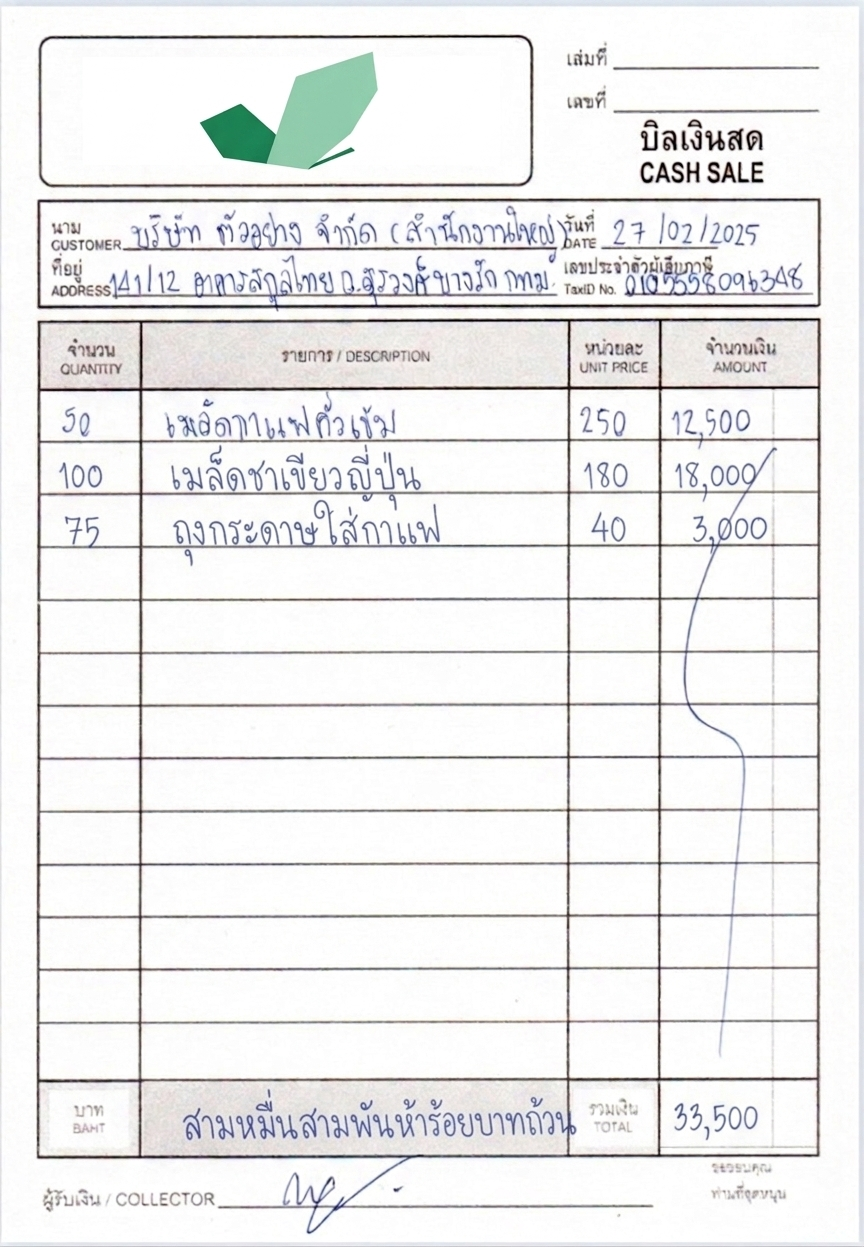 เล่มที่
เลขที่
บิลเงินสด
CASH SALE
นาม บริษัท ตัวอย่าง จำกัด (สำนักงานใหญ่) วันที่
CUSTOMER DATE 27/02/2025
ที่อยู่ เลขประจำตัวผู้เสียภาษี
ADDRESS 141/12 อาคารสกุลไทย ถ.สุรวงศ์ บางรัก กทม. TaxID No. 0105558096348
จำนวน รายการ / DESCRIPTION หน่วยละ จำนวนเงิน
QUANTITY UNIT PRICE AMOUNT
50 เมล็ดกาแฟคั่วเข้ม 250 12,500
100 เมล็ดชาเขียวญี่ปุ่น 180 18,000
75 ถุงกระดาษใส่กาแฟ 40 3,000
บาท สามหมื่นสามพันห้าร้อยบาทถ้วน รวมเงิน 33,500
BAHT TOTAL
ผู้รับเงิน / COLLECTOR
ขอขอบคุณ
ท่านที่อุดหนุน